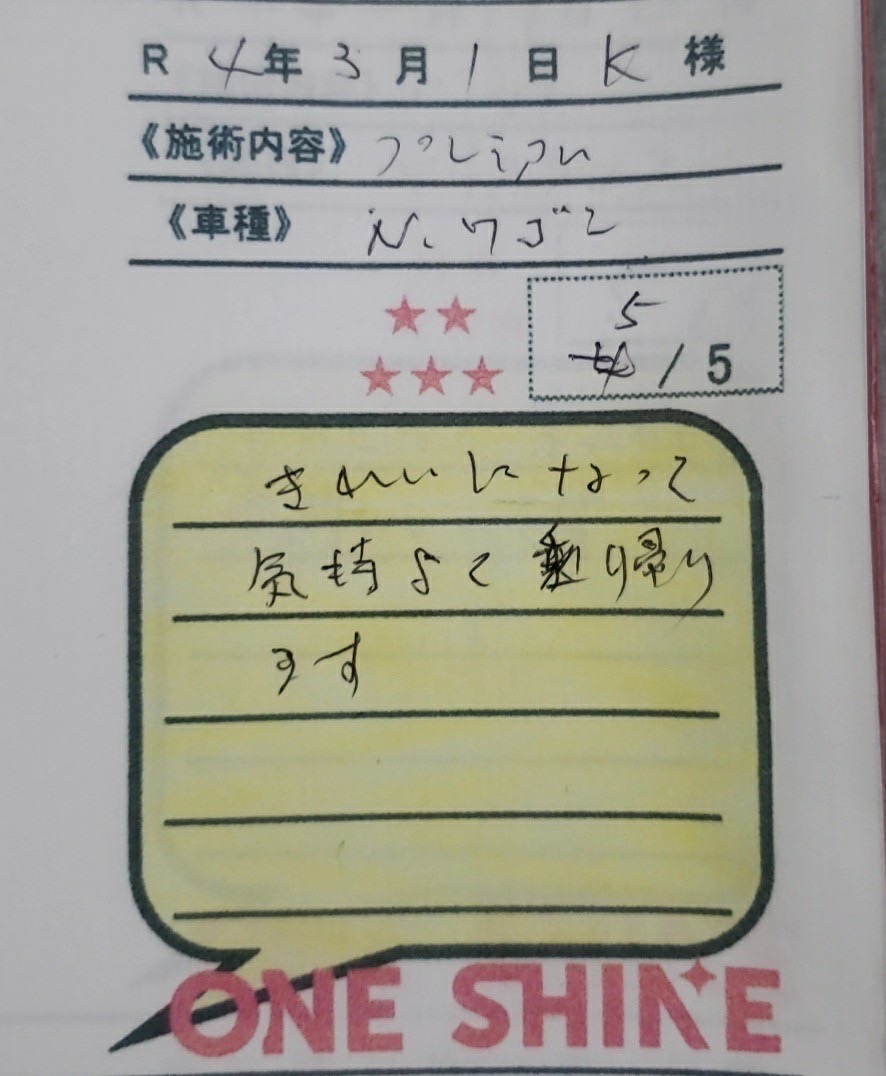 R 4年 3月 1日 K 様
《施術内容》 プレミアム
《車種》 N.ワゴン
5
/ 5
きれいになって
気持よく乗り帰り
ます
ONE SHINE